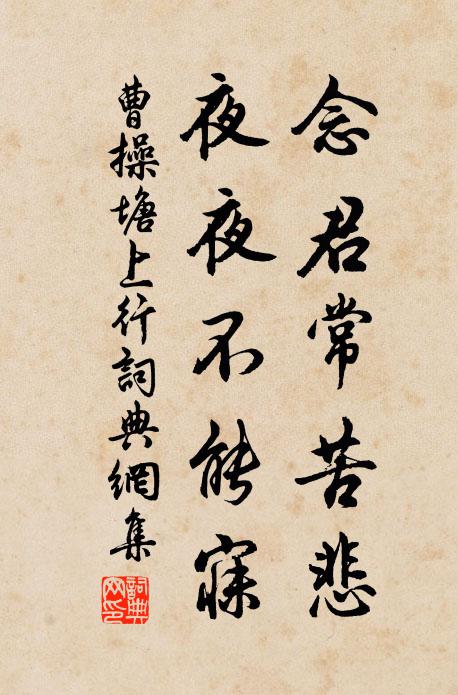 念君常苦悲
夜夜不能寐
曹操塘上行詞典網集
詞典网印